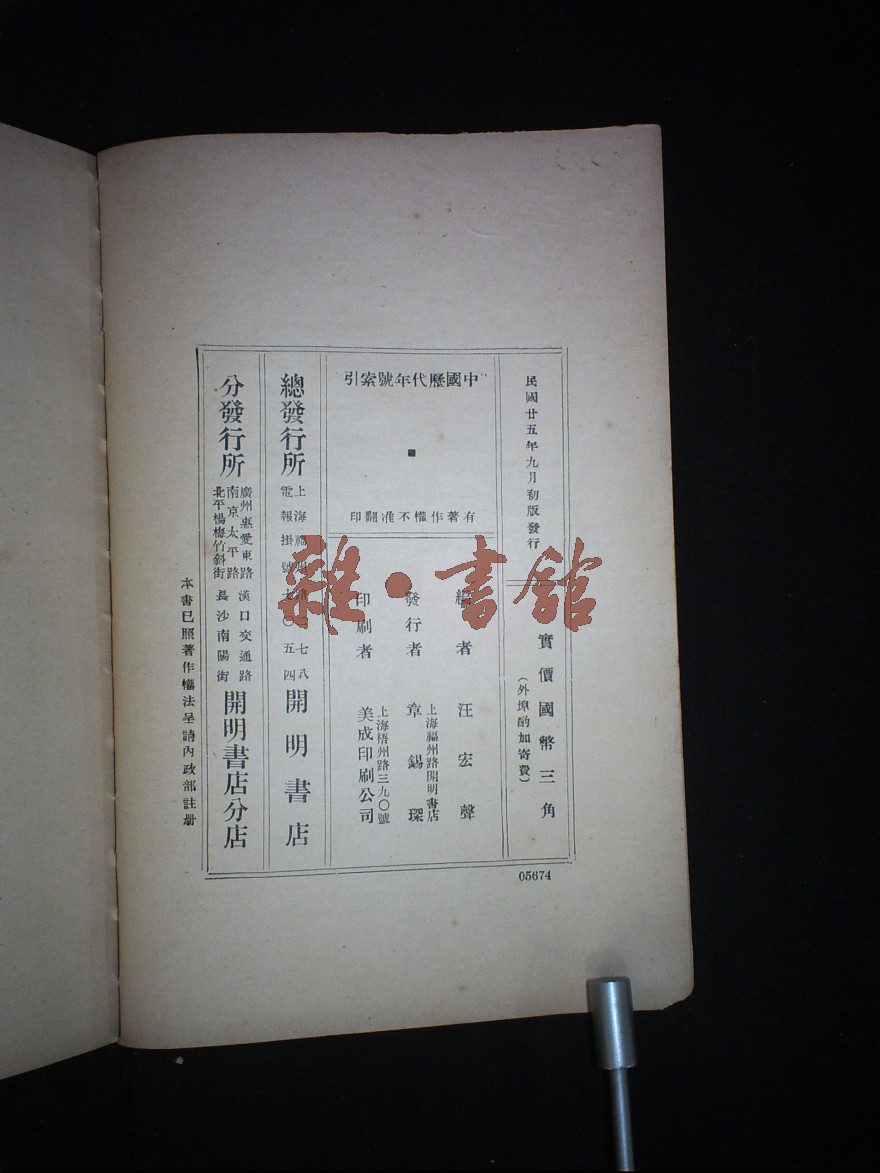 民國廿五年九月初版發行
實價國幣三角
(外埠酌加寄費)
中國歷代年號索引
有著作權不准翻印
編者 汪宏聲
發行者 章錫琛
上海福州路開明書店
印刷者 美成印刷公司
上海梧州路三九〇號
總發行所 開明書店
上海福州路二七八
電報掛號七〇五四
分發行所 開明書店分店
廣州惠愛東路 漢口交通路
南京太平路
北平楊梅竹斜街 長沙南陽街
本書已照著作權法呈請內政部註册
05674
雜·書館